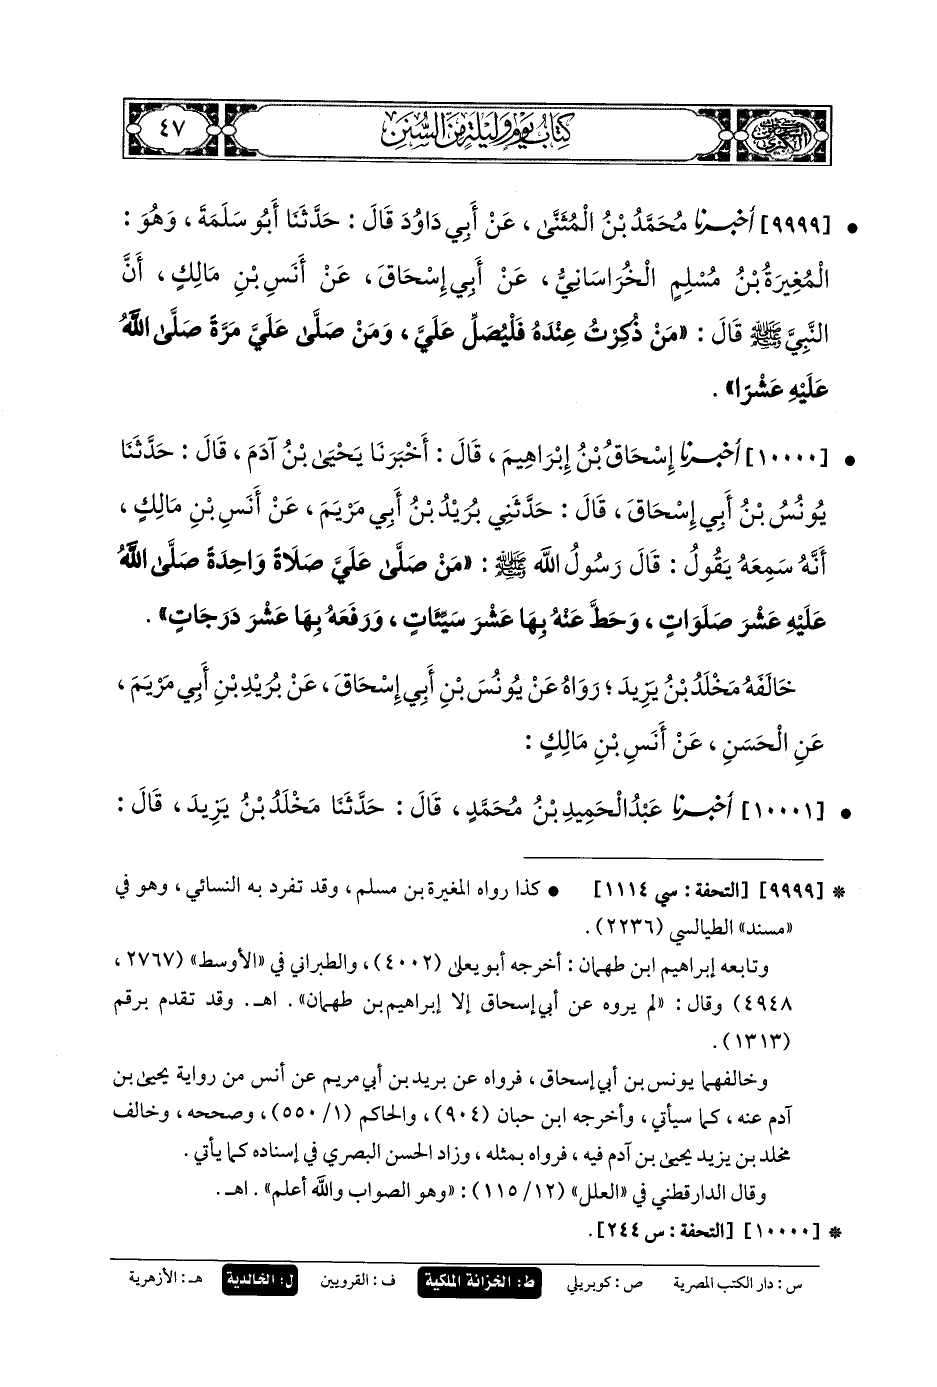 كتاب يوم وليلة من السنن
٤٧
• [٩٩٩٩] أخبرنا مُحَمَّدُ بْنُ الْمُثَنَّى ، عَنْ أَبِي دَاوُدَ قَالَ : حَدَّثَنَا أَبُو سَلَمَةَ ، وَهُوَ :
الْمُغِيرَةُ بْنُ مُسْلِمٍ الْخُرَاسَانِيُّ ، عَنْ أَبِي إِسْحَاقَ ، عَنْ أَنَسِ بْنِ مَالِكٍ ، أَنَّ
النَّبِيَّ ﷺ قَالَ : «مَنْ ذُكِرْتُ عِنْدَهُ فَلْيُصَلِّ عَلَيَّ ، وَمَنْ صَلَّى عَلَيَّ مَرَّةً صَلَّى اللَّهُ
عَلَيْهِ عَشْرًا» .
• [١٠٠٠٠] أخبرنا إِسْحَاقُ بْنُ إِبْرَاهِيمَ ، قَالَ : أَخْبَرَنَا يَحْيَى بْنُ آدَمَ ، قَالَ : حَدَّثَنَا
يُونُسُ بْنُ أَبِي إِسْحَاقَ ، قَالَ : حَدَّثَنِي بُرَيْدُ بْنُ أَبِي مَرْيَمَ ، عَنْ أَنَسِ بْنِ مَالِكٍ ،
أَنَّهُ سَمِعَهُ يَقُولُ : قَالَ رَسُولُ اللَّهِ ﷺ : «مَنْ صَلَّى عَلَيَّ صَلَاةً وَاحِدَةً صَلَّى اللَّهُ
عَلَيْهِ عَشْرَ صَلَوَاتٍ ، وَحَطَّ عَنْهُ بِهَا عَشْرَ سَيِّئَاتٍ ، وَرَفَعَهُ بِهَا عَشْرَ دَرَجَاتٍ» .
خَالَفَهُ مَخْلَدُ بْنُ يَزِيدَ ؛ رَوَاهُ عَنْ يُونُسَ بْنِ أَبِي إِسْحَاقَ ، عَنْ بُرَيْدِ بْنِ أَبِي مَرْيَمَ ،
عَنِ الْحَسَنِ ، عَنْ أَنَسِ بْنِ مَالِكٍ :
• [١٠٠٠١] أخبرنا عَبْدُ الْحَمِيدِ بْنُ مُحَمَّدٍ ، قَالَ : حَدَّثَنَا مَخْلَدُ بْنُ يَزِيدَ ، قَالَ :
* [٩٩٩٩] [التحفة : سي ١١١٤] • كذا رواه المغيرة بن مسلم ، وقد تفرد به النسائي ، وهو في
«مسند» الطيالسي (٢٢٣٦) .
وتابعه إبراهيم ابن طهمان : أخرجه أبو يعلى (٤٠٠٢) ، والطبراني في «الأوسط» (٢٧٦٧ ،
٤٩٤٨) وقال : «لم يروه عن أبي إسحاق إلا إبراهيم بن طهمان» . اهـ. وقد تقدم برقم
(١٣١٣) .
وخالفهما يونس بن أبي إسحاق ، فرواه عن بريد بن أبي مريم عن أنس من رواية يحيى بن
آدم عنه ، كما سيأتي ، وأخرجه ابن حبان (٩٠٤) ، والحاكم (١/ ٥٥٠) ، وصححه ، وخالف
مخلد بن يزيد يحيى بن آدم فيه ، فرواه بمثله ، وزاد الحسن البصري في إسناده كما يأتي .
وقال الدارقطني في «العلل» (١٢/ ١١٥) : «وهو الصواب والله أعلم» . اهـ.
* [١٠٠٠٠] [التحفة : س ٢٤٤] .
س : دار الكتب المصرية ص : كوبريلي ط : الخزانة الملكية ف : القرويين ل : الخالدية هـ : الأزهرية